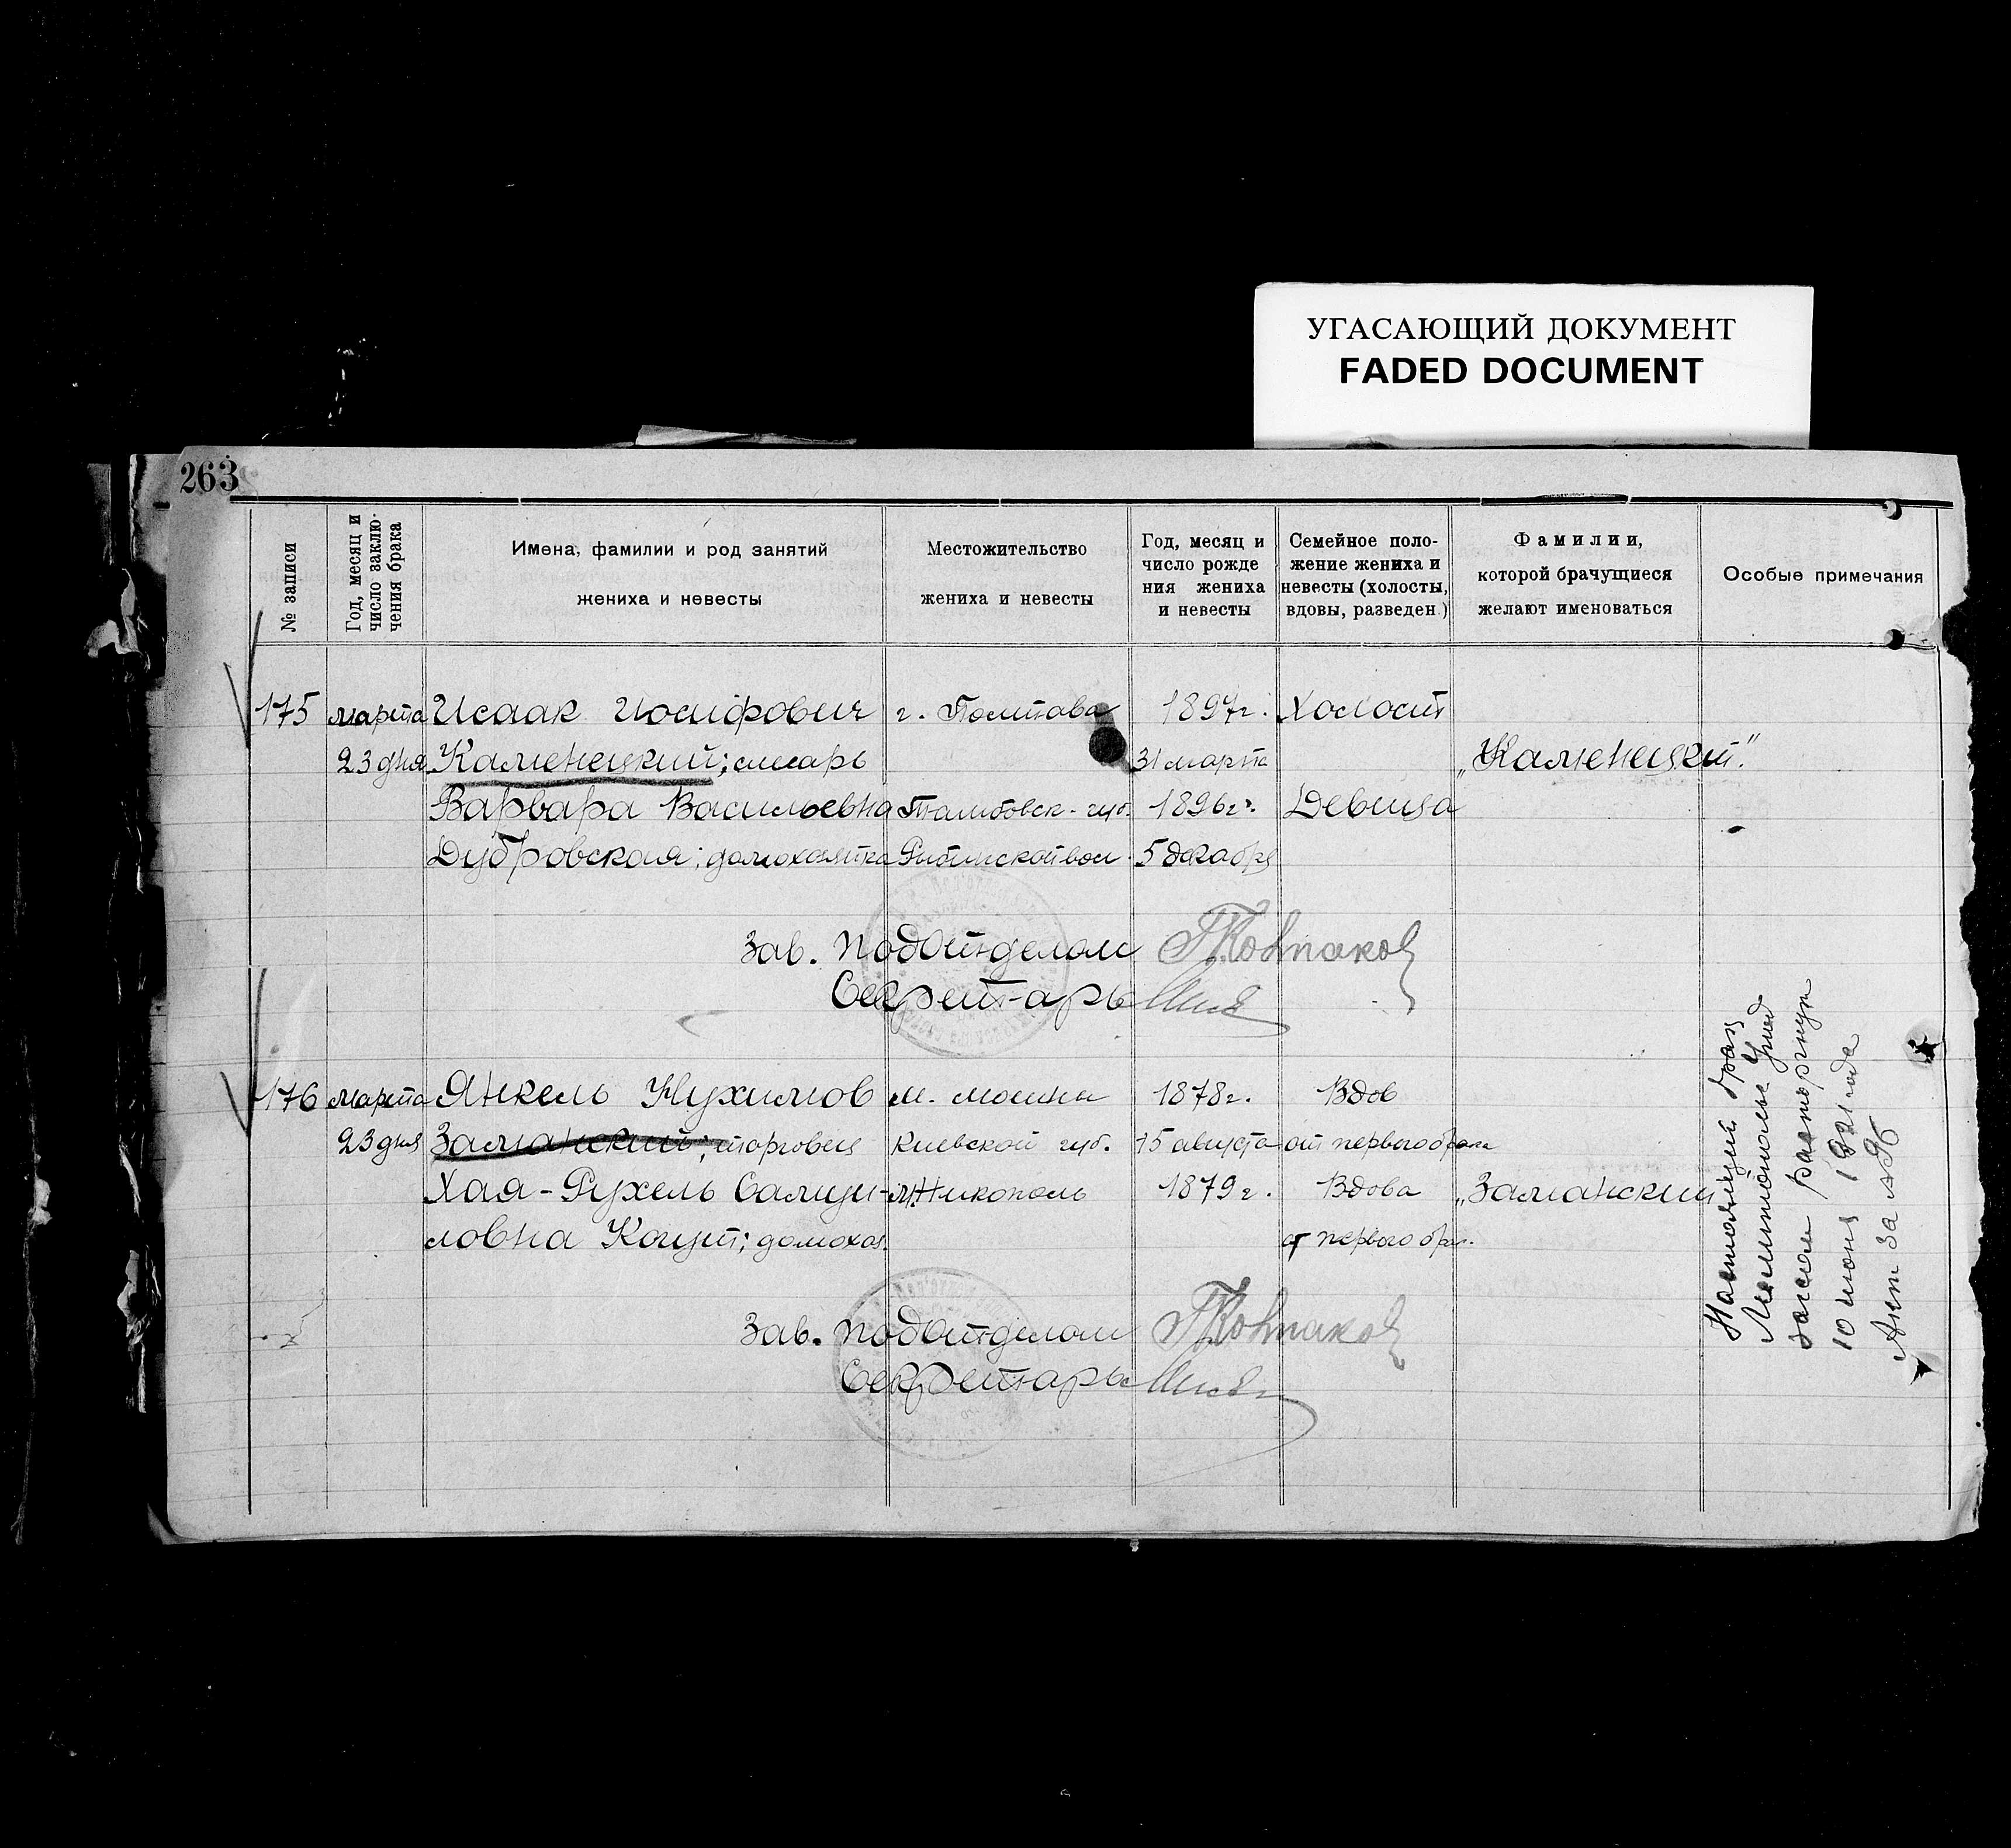 УГАСАЮЩИЙ ДОКУМЕНТ
FADED DOCUMENT
263
№ записи
Год, месяц и
число заклю-
чения брака
Имена, фамилии и род занятий
жениха и невесты
Местожительство
жениха и невесты
Год, месяц и
число рожде
ния жениха
и невесты
Семейное поло-
жение жениха и
невесты (холосты,
вдовы, разведен.)
Фамилии,
которой брачущиеся
желают именоваться
Особые примечания
175 марта Исаак Иосифович г. Полтава 1897г. Холост
23 дня Каменецкий; слесарь 31 марта „Каменецкий."
Варвара Васильевна Тамбовск. губ. 1896г. Девица
Дубровская; домохозяйка вол. 5 декабря
Зав. подотделом
Секретарь
176 марта Янкель Нухимов м. Мошны 1878г. Вдов
23 дня Заманский; торговец Киевской губ. 15 августа от первого брака
Хая-Рухель Самуи- м. Никополь 1879г. Вдова „Заманский
ловна Когут; домохоз. от первого брак.
Зав. подотделом
Секретарь
Настоящий брак
Мелитополье
загсом расторгнут
10 июня 1921 года
Акт за №